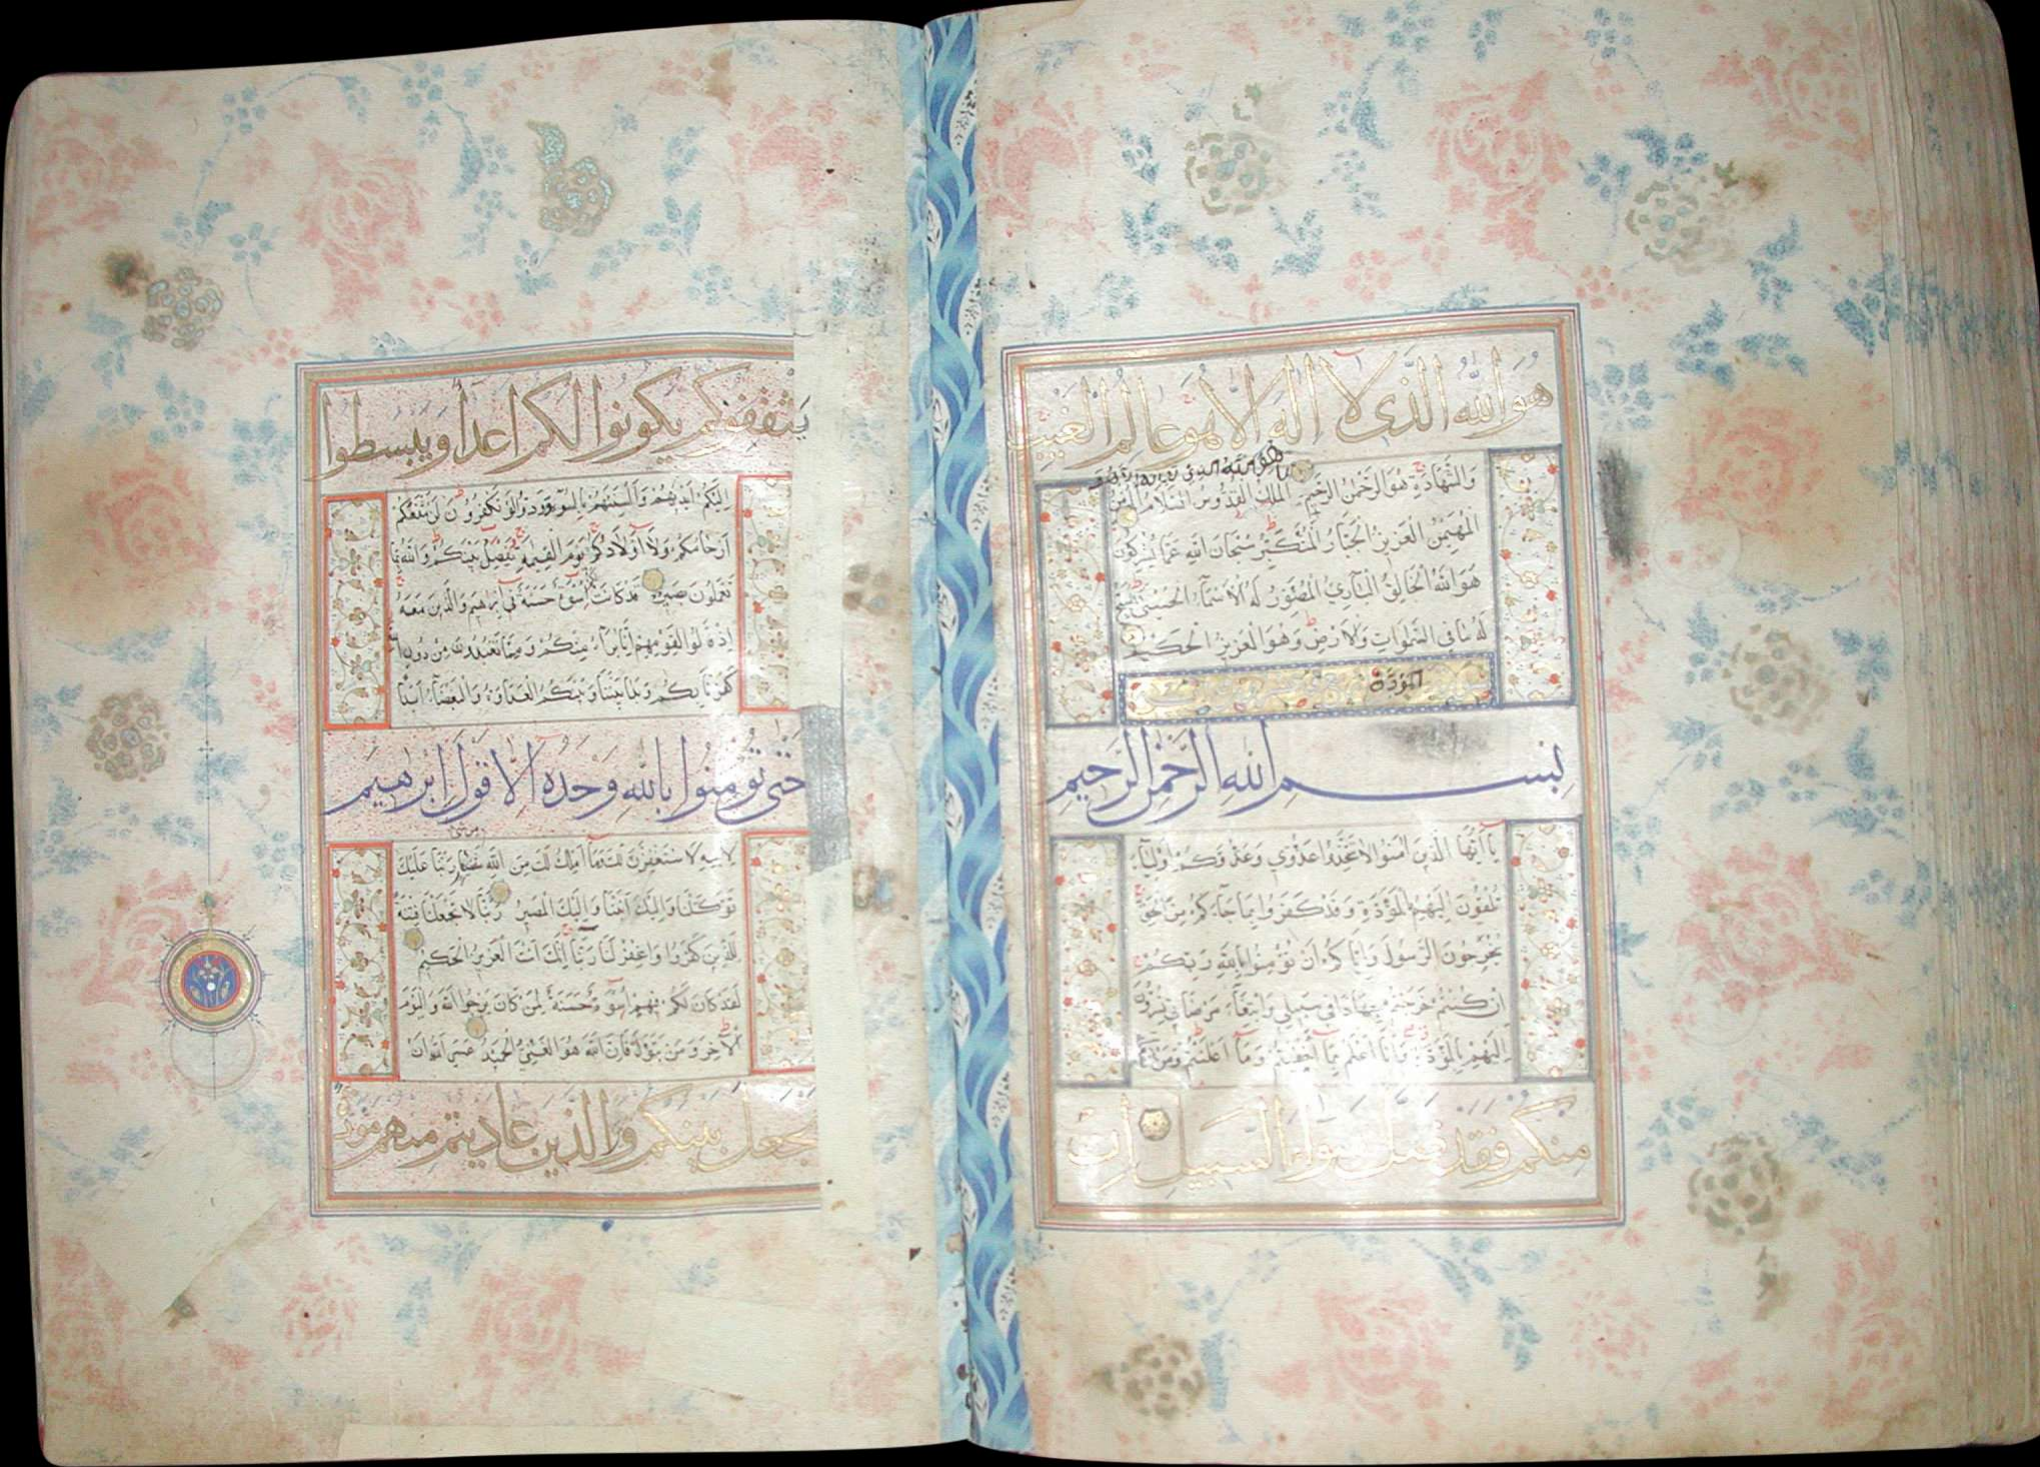 هُوَ اللَّهُ الَّذِي لَا إِلَهَ إِلَّا هُوَ عَالِمُ الْغَيْبِ
هو الله الذي
وَالشَّهَادَةِ هُوَ الرَّحْمٰنُ الرَّحِيمُ الْمَلِكُ الْقُدُّوسُ السَّلَامُ الْمُؤْمِنُ
الْمُهَيْمِنُ الْعَزِيزُ الْجَبَّارُ الْمُتَكَبِّرُ سُبْحَانَ اللَّهِ عَمَّا يُشْرِكُونَ
هُوَ اللَّهُ الْخَالِقُ الْبَارِئُ الْمُصَوِّرُ لَهُ الْأَسْمَاءُ الْحُسْنَىٰ يُسَبِّحُ
لَهُ مَا فِي السَّمٰوَاتِ وَالْأَرْضِ وَهُوَ الْعَزِيزُ الْحَكِيمُ
المودة
بِسْمِ اللَّهِ الرَّحْمٰنِ الرَّحِيمِ
يَا أَيُّهَا الَّذِينَ آمَنُوا لَا تَتَّخِذُوا عَدُوِّي وَعَدُوَّكُمْ أَوْلِيَاءَ
تُلْقُونَ إِلَيْهِمْ بِالْمَوَدَّةِ وَقَدْ كَفَرُوا بِمَا جَاءَكُمْ مِنَ الْحَقِّ
يُخْرِجُونَ الرَّسُولَ وَإِيَّاكُمْ أَنْ تُؤْمِنُوا بِاللَّهِ رَبِّكُمْ
إِنْ كُنْتُمْ خَرَجْتُمْ جِهَادًا فِي سَبِيلِي وَابْتِغَاءَ مَرْضَاتِي تُسِرُّونَ
إِلَيْهِمْ بِالْمَوَدَّةِ وَأَنَا أَعْلَمُ بِمَا أَخْفَيْتُمْ وَمَا أَعْلَنْتُمْ وَمَنْ يَفْعَلْهُ
مِنْكُمْ فَقَدْ ضَلَّ سَوَاءَ السَّبِيلِ إِنْ
يَثْقَفُوكُمْ يَكُونُوا لَكُمْ أَعْدَاءً وَيَبْسُطُوا
إِلَيْكُمْ أَيْدِيَهُمْ وَأَلْسِنَتَهُمْ بِالسُّوءِ وَوَدُّوا لَوْ تَكْفُرُونَ لَنْ تَنْفَعَكُمْ
أَرْحَامُكُمْ وَلَا أَوْلَادُكُمْ يَوْمَ الْقِيٰمَةِ يَفْصِلُ بَيْنَكُمْ وَاللَّهُ بِمَا
تَعْمَلُونَ بَصِيرٌ قَدْ كَانَتْ لَكُمْ أُسْوَةٌ حَسَنَةٌ فِي إِبْرٰهِيمَ وَالَّذِينَ مَعَهُ
إِذْ قَالُوا لِقَوْمِهِمْ إِنَّا بُرَآءُ مِنْكُمْ وَمِمَّا تَعْبُدُونَ مِنْ دُونِ اللَّهِ
كَفَرْنَا بِكُمْ وَبَدَا بَيْنَنَا وَبَيْنَكُمُ الْعَدَاوَةُ وَالْبَغْضَاءُ أَبَدًا
حَتَّى تُؤْمِنُوا بِاللَّهِ وَحْدَهُ إِلَّا قَوْلَ إِبْرٰهِيمَ
لِأَبِيهِ لَأَسْتَغْفِرَنَّ لَكَ وَمَا أَمْلِكُ لَكَ مِنَ اللَّهِ مِنْ شَيْءٍ رَبَّنَا عَلَيْكَ
تَوَكَّلْنَا وَإِلَيْكَ أَنَبْنَا وَإِلَيْكَ الْمَصِيرُ رَبَّنَا لَا تَجْعَلْنَا فِتْنَةً
لِلَّذِينَ كَفَرُوا وَاغْفِرْ لَنَا رَبَّنَا إِنَّكَ أَنْتَ الْعَزِيزُ الْحَكِيمُ
لَقَدْ كَانَ لَكُمْ فِيهِمْ أُسْوَةٌ حَسَنَةٌ لِمَنْ كَانَ يَرْجُوا اللَّهَ وَالْيَوْمَ
الْآخِرَ وَمَنْ يَتَوَلَّ فَإِنَّ اللَّهَ هُوَ الْغَنِيُّ الْحَمِيدُ عَسَى اللَّهُ أَنْ
يَجْعَلَ بَيْنَكُمْ وَبَيْنَ الَّذِينَ عَادَيْتُمْ مِنْهُمْ مَوَدَّةً